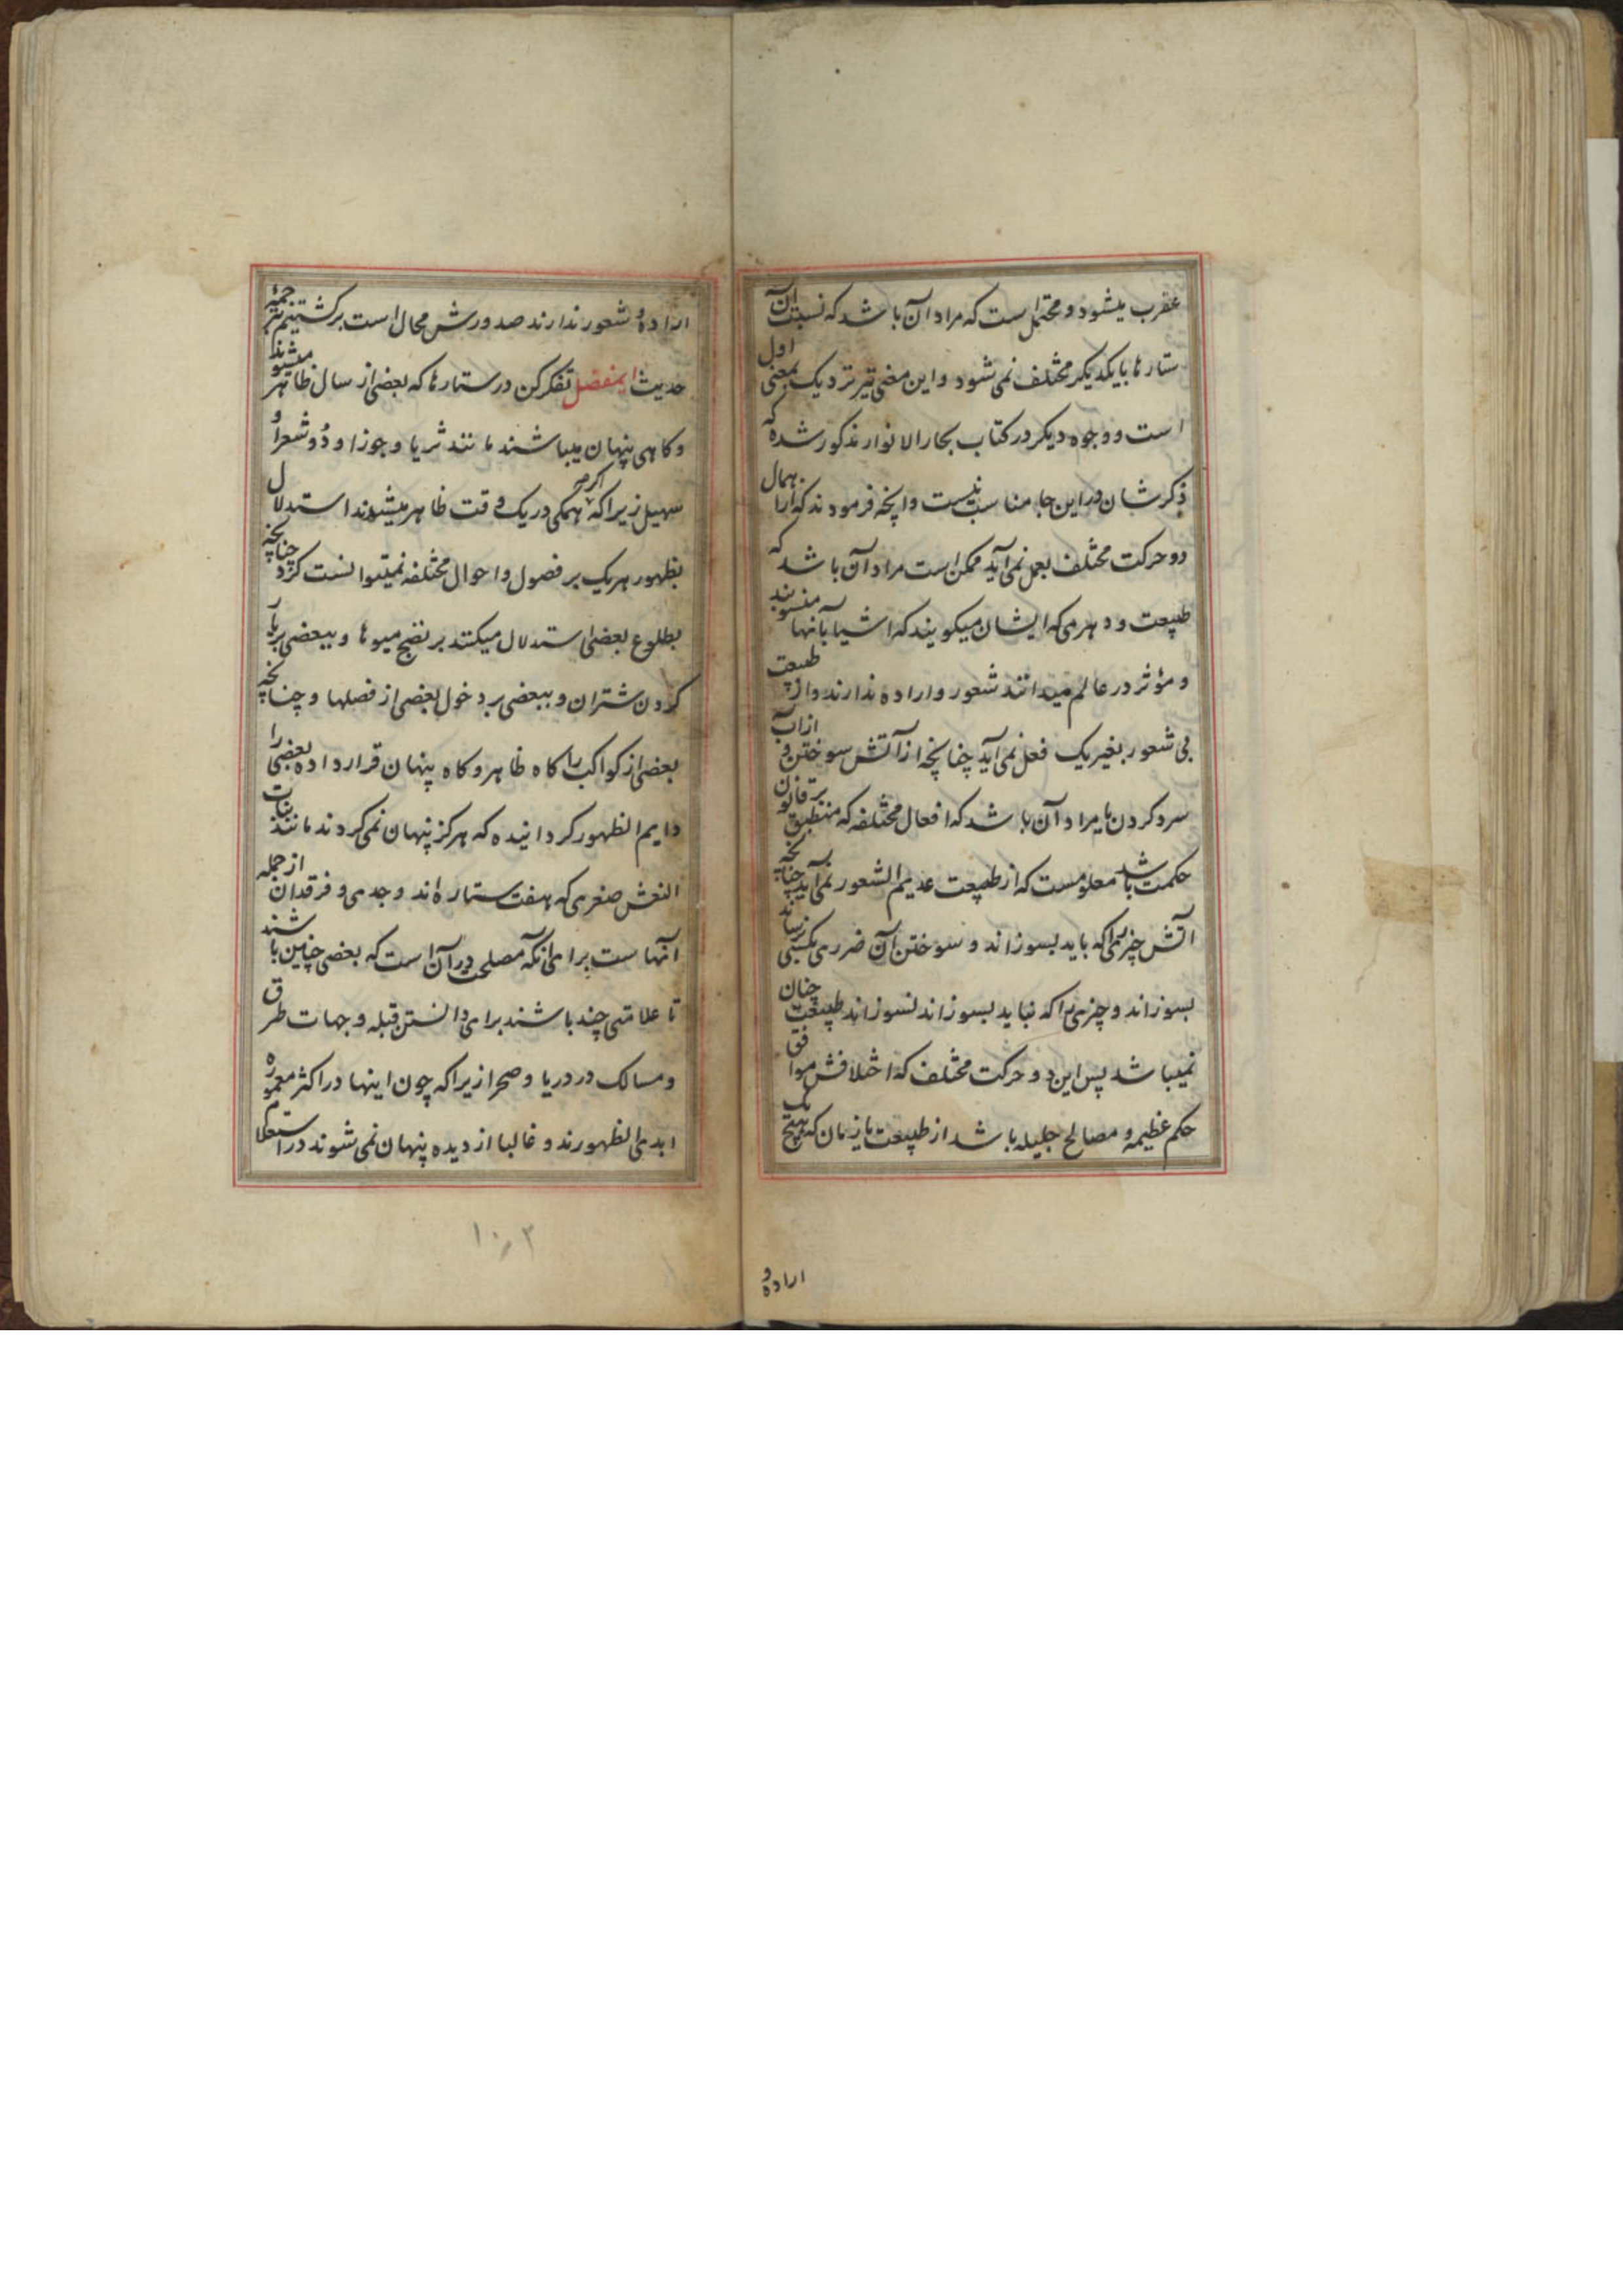 عقرب میشود و محتمل است که مراد آن باشد که نسبت آن
ستارها بایکدیکر مختلف نمی شود و این معنی نیز نزدیک بمعنی اول
است و وجوه دیکر در کتاب بحار الانوار مذکور شده که
ذکر شان در این جا مناسب نیست و انچه فرمودند که از اهمال
دو حرکت مختلف بعمل نمی آید ممکن است مراد آن باشد که
طبیعت و دهری که ایشان میکویند که اشیا بآنها منسوبند
و مؤثر در عالم میدانند شعور و اراده ندارند و از طبیعت
بی شعور بغیر یک فعل نمی آید چنانچه از آتش سوختن و از آب
سرد کردن یا مراد آن باشد که افعال مختلفه که منطبق بر قانون
حکمت باشد معلومست که از طبیعت عدیم الشعور نمی آید چنانچه
اتش چیزی را که باید بسوزاند و سوختن آن ضرری بکسی نرساند
بسوزاند و چیزی را که نباید بسوزاند نسوزاند طبیعت چنان
نمیباشد پس این دو حرکت مختلف که اختلافش موافق
حکم عظیمه و مصالح جلیله باشد از طبیعت یا زمان که هیچ یک
اراده و
اراده و شعور ندارند صدورش محال است برکشتیم بترجمهٔ
حدیث ایمفضل تفکر کن در ستارها که بعضی از سال ظاهر میشوند
و کاهی پنهان میباشند مانند ثریا و جوزا و دو شعرا و
سهیل زیرا که اکر همکی در یک وقت ظاهر میشدند استدلال
بظهور هر یک بر فصول و احوال مختلفه نمیتوانست کرد چنانچه
بطلوع بعضی استدلال میکنند بر نضج میوها و ببعضی بر بار
کردن شتران و ببعضی بر دخول بعضی از فصلها و چنانچه
بعضی از کواکب را کاه ظاهر و کاه پنهان قرار داده بعضی را
دایم الظهور کردانیده که هرکز پنهان نمی کردند مانند بنات
النعش صغری که هفت ستاره اند و جدی و فرقدان از جمله
آنهاست برای انکه مصلحت در آن است که بعضی چنین باشند
تا علامتی چند باشند برای دانستن قبله و جهات طرق
و مسالک در دریا و صحرا زیرا که چون اینها در اکثر معموره
ابدی الظهورند و غالبا از دیده پنهان نمی شوند در استعلام
۱۰۲